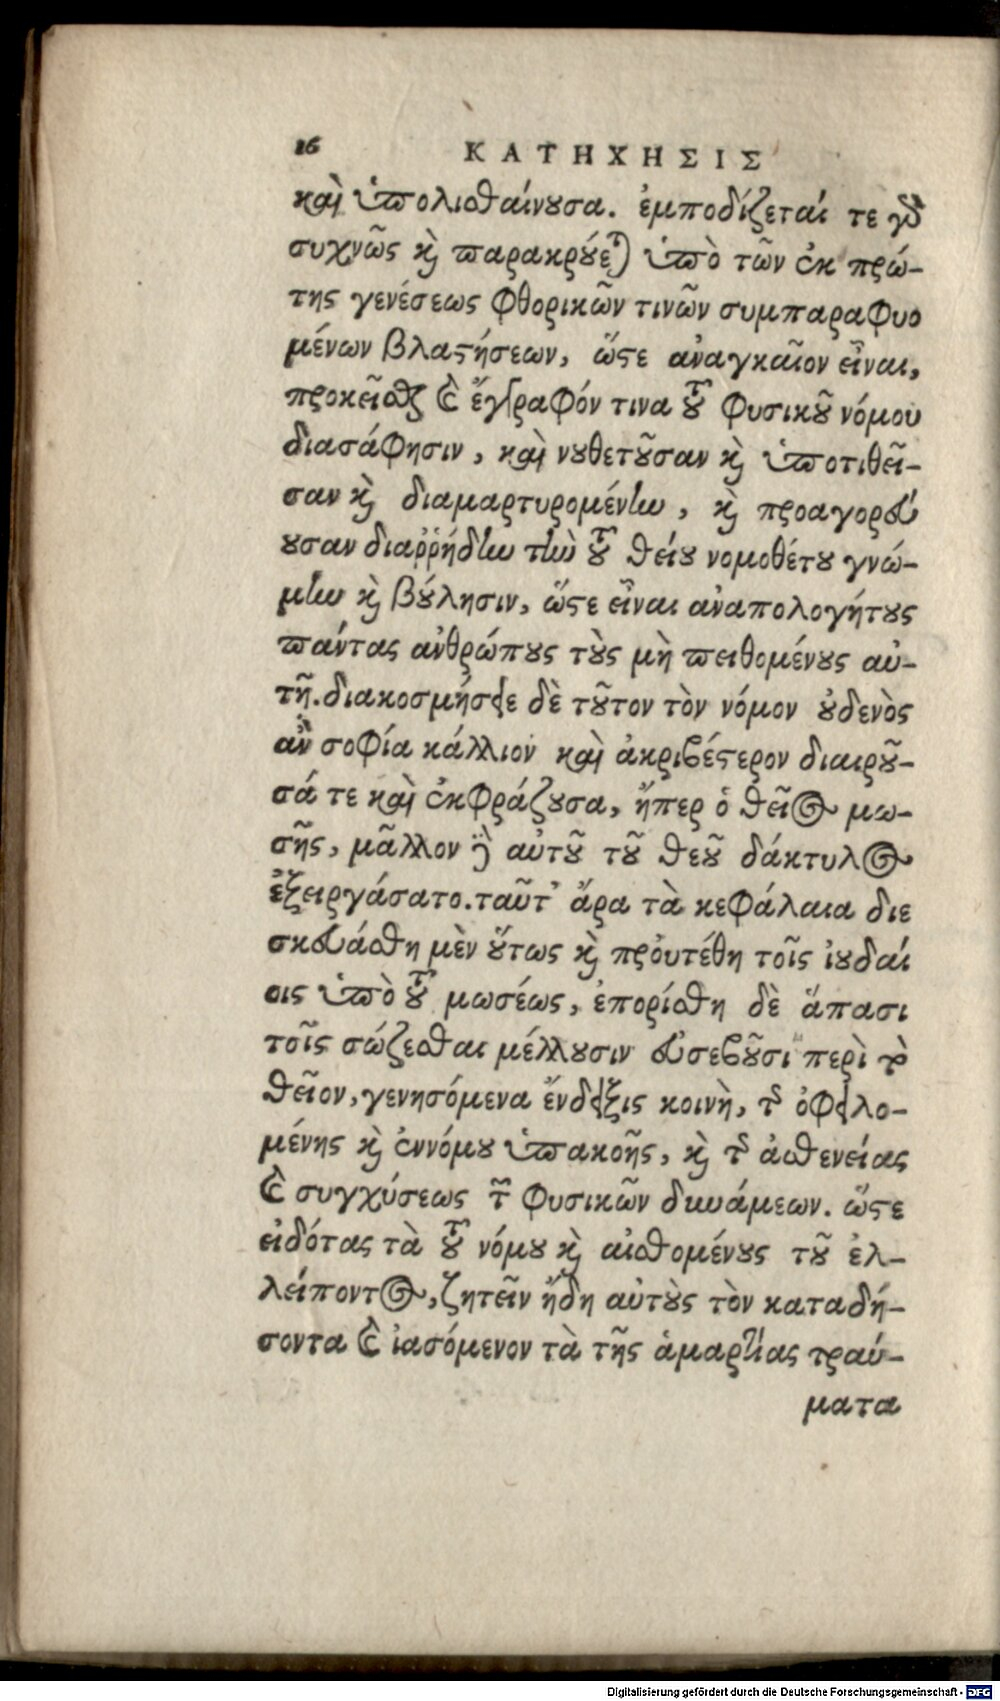 16 ΚΑΤΗΧΗΣΙΣ
καὶ ὑπολισθαίνουσα. ἐμποδίζεταί τε γὰρ
συχνῶς καὶ παρακρούεται ὑπὸ τῶν ἐκ πρώ-
της γενέσεως φθορικῶν τινῶν συμπαραφυο
μένων βλαστήσεων, ὥστε ἀναγκαῖον εἶναι,
προκεῖσθαι καὶ ἔγγραφόν τινα τοῦ φυσικοῦ νόμου
διασάφησιν, καὶ νουθετοῦσαν καὶ ὑποτιθεῖ-
σαν καὶ διαμαρτυρομένην, καὶ προαγορεύ
ουσαν διαῤῥήδην τὴν τοῦ θείου νομοθέτου γνώ-
μην καὶ βούλησιν, ὥστε εἶναι ἀναπολογήτους
πάντας ἀνθρώπους τοὺς μὴ πειθομένους αὐ-
τῇ. διακοσμήσειε δὲ τοῦτον τὸν νόμον οὐδενὸς
ἂν σοφία κάλλιον καὶ ἀκριβέστερον διαιροῦ-
σά τε καὶ ἐκφράζουσα, ἤπερ ὁ θεῖος μω-
σῆς, μᾶλλον δὲ αὐτοῦ τοῦ θεοῦ δάκτυλος
ἐξειργάσατο. ταῦτ' ἄρα τὰ κεφάλαια διε
σκευάσθη μὲν οὕτως καὶ προὐτέθη τοῖς ἰουδαί
οις ὑπὸ τοῦ μωσέως, ἐπορίσθη δὲ ἅπασι
τοῖς σώζεσθαι μέλλουσιν εὐσεβοῦσι περὶ τὸ
θεῖον, γενησόμενα ἔνδειξις κοινὴ, τῆς ὀφειλο-
μένης καὶ ἐννόμου ὑπακοῆς, καὶ τῆς ἀσθενείας
καὶ συγχύσεως τῶν φυσικῶν δυνάμεων. ὥστε
εἰδότας τὰ τοῦ νόμου καὶ αἰσθομένους τοῦ ἐλ-
λείποντος, ζητεῖν ἤδη αὐτοὺς τὸν καταδή-
σοντα καὶ ἰασόμενον τὰ τῆς ἁμαρτίας τραύ-
ματα
Digitalisierung gefördert durch die Deutsche Forschungsgemeinschaft - DFG